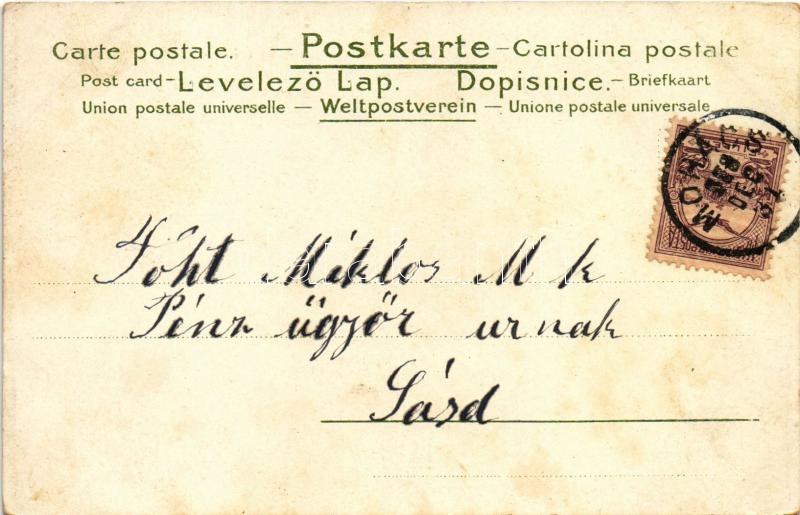 Carte postale. — Postkarte — Cartolina postale
Post card — Levelező Lap. Dopisnice. — Briefkaart
Union postale universelle — Weltpostverein — Unione postale universale
Miklos M k
Pénz ügyőr urnak
Sásd